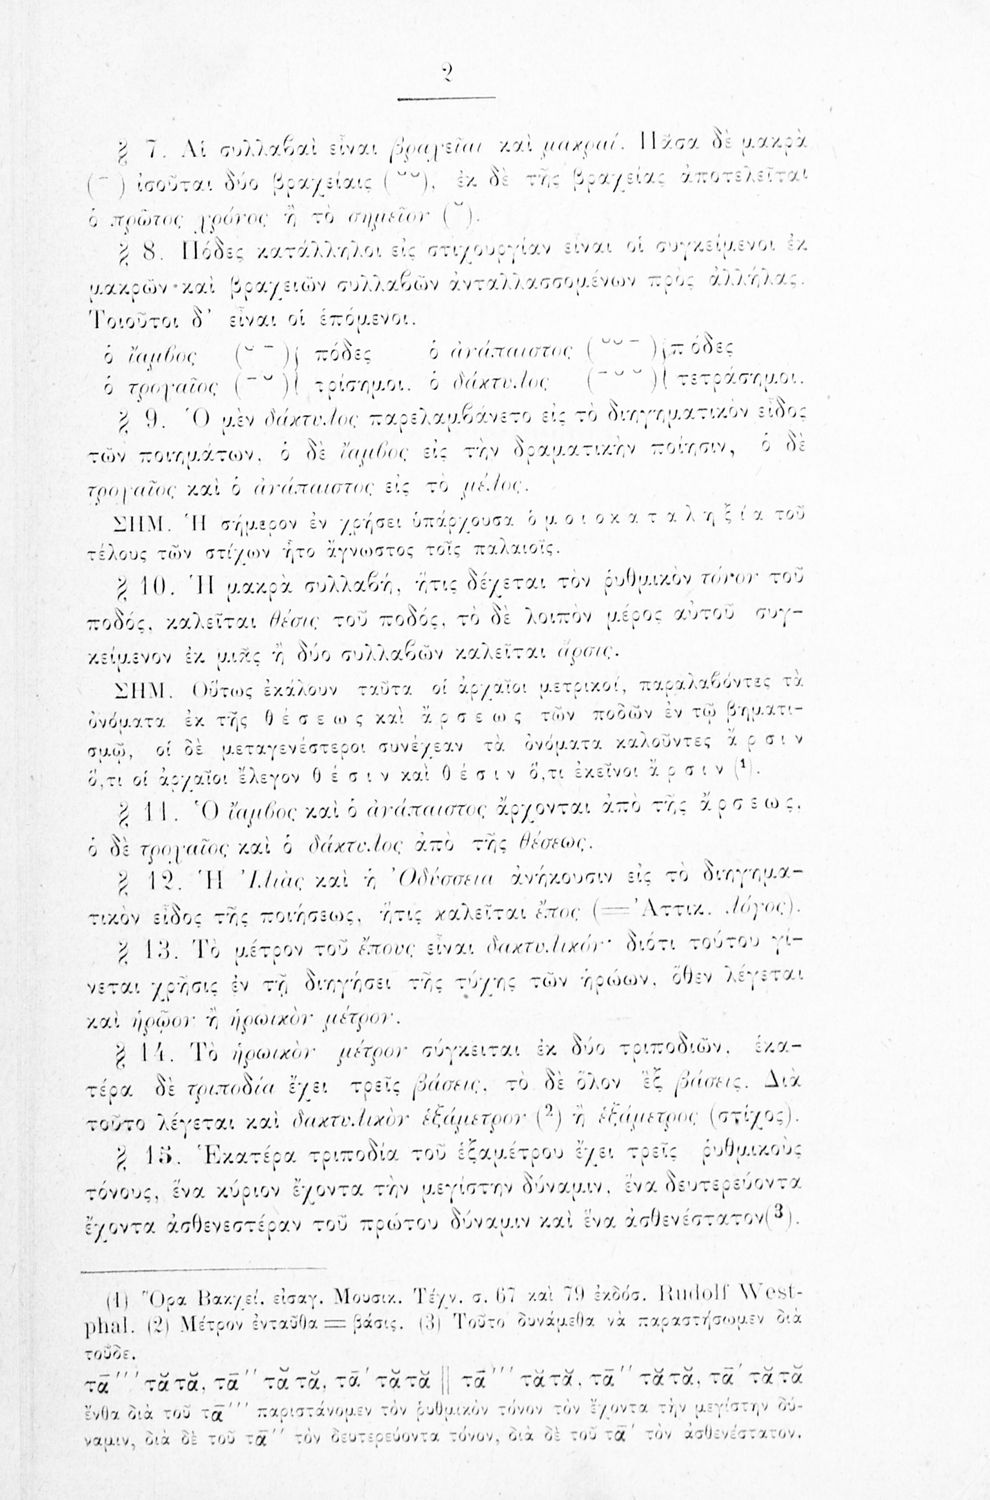 2
§ 7. Αἱ συλλαβαὶ εἶναι βραχεῖαι καὶ μακραί. Πᾶσα δὲ μακρὰ
(¯) ἰσοῦται δύο βραχείαις (˘˘), ἐκ δὲ τῆς βραχείας ἀποτελεῖται
ὁ πρῶτος χρόνος ἢ τὸ σημεῖον (˘).
§ 8. Πόδες κατάλληλοι εἰς στιχουργίαν εἶναι οἱ συγκείμενοι ἐκ
μακρῶν καὶ βραχειῶν συλλαβῶν ἀνταλλασσομένων πρὸς ἀλλήλας.
Τοιοῦτοι δ' εἶναι οἱ ἑπόμενοι.
ὁ ἴαμβος (˘ ¯) { πόδες ὁ ἀνάπαιστος (˘˘¯) { πόδες
ὁ τροχαῖος (¯˘) { τρίσημοι. ὁ δάκτυλος (¯˘˘) { τετράσημοι.
§ 9. Ὁ μὲν δάκτυλος παρελαμβάνετο εἰς τὸ διηγηματικὸν εἶδος
τῶν ποιημάτων, ὁ δὲ ἴαμβος εἰς τὴν δραματικὴν ποίησιν, ὁ δὲ
τροχαῖος καὶ ὁ ἀνάπαιστος εἰς τὸ μέλος.
ΣΗΜ. Ἡ σήμερον ἐν χρήσει ὑπάρχουσα ὁμοιοκαταληξία τοῦ
τέλους τῶν στίχων ἦτο ἄγνωστος τοῖς παλαιοῖς.
§ 10. Ἡ μακρὰ συλλαβή, ἥτις δέχεται τὸν ῥυθμικὸν τόνον τοῦ
ποδός, καλεῖται θέσις τοῦ ποδός, τὸ δὲ λοιπὸν μέρος αὐτοῦ συγ-
κείμενον ἐκ μιᾶς ἢ δύο συλλαβῶν καλεῖται ἄρσις.
ΣΗΜ. Οὕτως ἐκάλουν ταῦτα οἱ ἀρχαῖοι μετρικοί, παραλαβόντες τὰ
ὀνόματα ἐκ τῆς θέσεως καὶ ἄρσεως τῶν ποδῶν ἐν τῷ βηματι-
σμῷ, οἱ δὲ μεταγενέστεροι συνέχεαν τὰ ὀνόματα καλοῦντες ἄρσιν
ὅ,τι οἱ ἀρχαῖοι ἔλεγον θέσιν καὶ θέσιν ὅ,τι ἐκεῖνοι ἄρσιν (¹).
§ 11. Ὁ ἴαμβος καὶ ὁ ἀνάπαιστος ἄρχονται ἀπὸ τῆς ἄρσεως,
ὁ δὲ τροχαῖος καὶ ὁ δάκτυλος ἀπὸ τῆς θέσεως.
§ 12. Ἡ Ἰλιὰς καὶ ἡ Ὀδύσσεια ἀνήκουσιν εἰς τὸ διηγημα-
τικὸν εἶδος τῆς ποιήσεως, ἥτις καλεῖται ἔπος (=Ἀττικ. λόγος).
§ 13. Τὸ μέτρον τοῦ ἔπους εἶναι δακτυλικόν· διότι τούτου γί-
νεται χρῆσις ἐν τῇ διηγήσει τῆς τύχης τῶν ἡρώων, ὅθεν λέγεται
καὶ ἡρῷον ἢ ἡρωικὸν μέτρον.
§ 14. Τὸ ἡρωικὸν μέτρον σύγκειται ἐκ δύο τριποδιῶν, ἑκα-
τέρα δὲ τριποδία ἔχει τρεῖς βάσεις, τὸ δὲ ὅλον ἓξ βάσεις. Διὰ
τοῦτο λέγεται καὶ δακτυλικὸν ἑξάμετρον (²) ἢ ἑξάμετρος (στίχος).
§ 15. Ἑκατέρα τριποδία τοῦ ἑξαμέτρου ἔχει τρεῖς ῥυθμικοὺς
τόνους, ἕνα κύριον ἔχοντα τὴν μεγίστην δύναμιν, ἕνα δευτερεύοντα
ἔχοντα ἀσθενεστέραν τοῦ πρώτου δύναμιν καὶ ἕνα ἀσθενέστατον(³).
(1) Ὅρα Βακχεί. εἰσαγ. Μουσικ. Τέχν. σ. 67 καὶ 79 ἐκδόσ. Rudolf West-
phal. (2) Μέτρον ἐνταῦθα = βάσις. (3) Τοῦτο δυνάμεθα νὰ παραστήσωμεν διὰ
τοῦδε.
τᾱ''' τᾰτᾰ, τᾱ'' τᾰτᾰ, τᾱ' τᾰτᾰ || τᾱ''' τᾰτᾰ, τᾱ'' τᾰτᾰ, τᾱ' τᾰτᾰ
ἔνθα διὰ τοῦ τᾱ''' παριστάνομεν τὸν ῥυθμικὸν τόνον τὸν ἔχοντα τὴν μεγίστην δύ-
ναμιν, διὰ δὲ τοῦ τᾱ'' τὸν δευτερεύοντα τόνον, διὰ δὲ τοῦ τᾱ' τὸν ἀσθενέστατον.